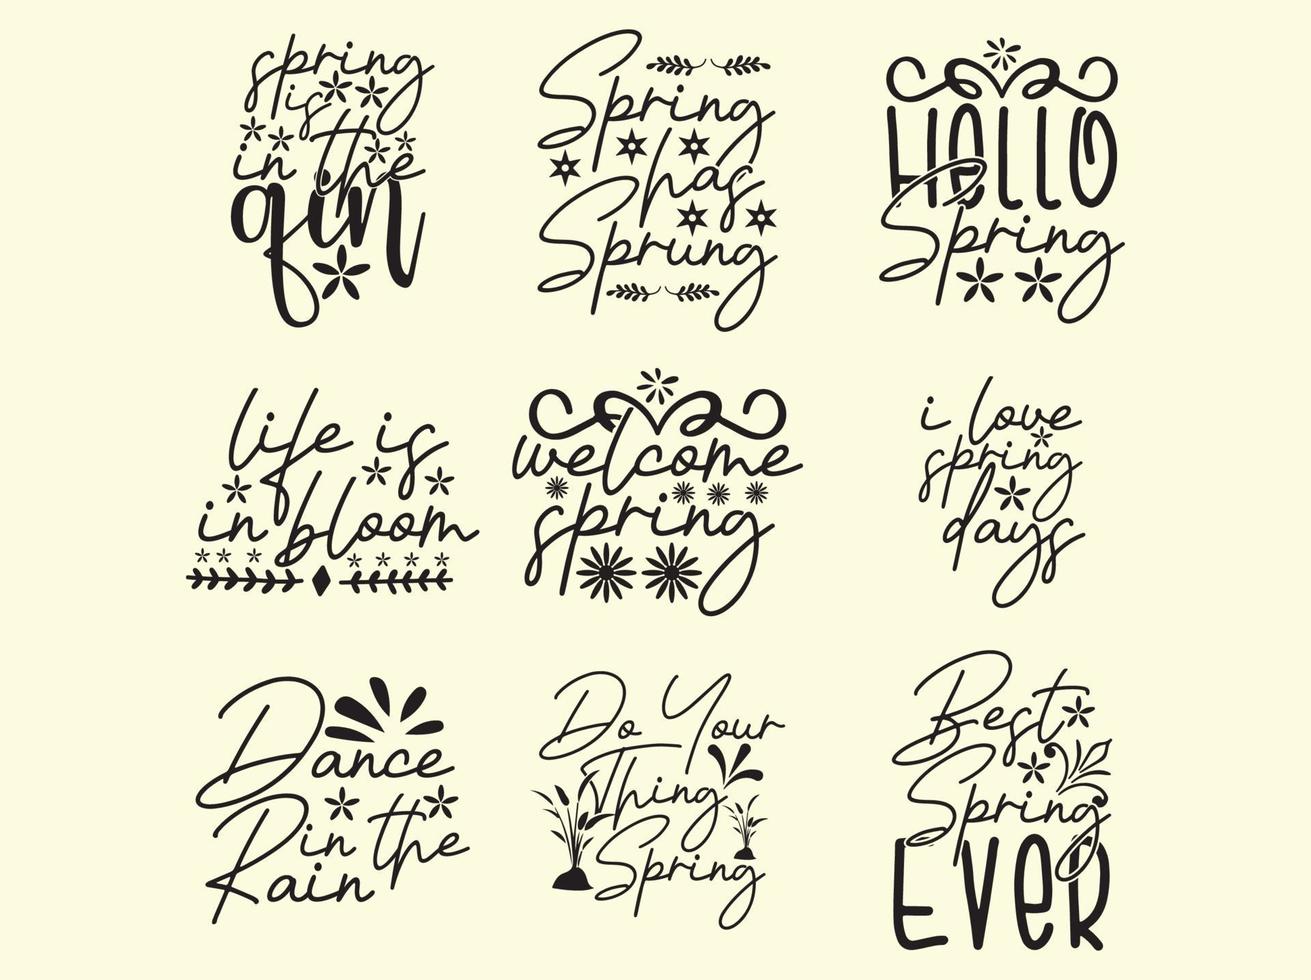 spring
is
in the
qin
Spring
has
Sprung
HELLO
Spring
life is
in bloom
welcome
spring
i love
spring
days
Dance
in the
Rain
Do Your
Thing
Spring
Best
Spring
EVER